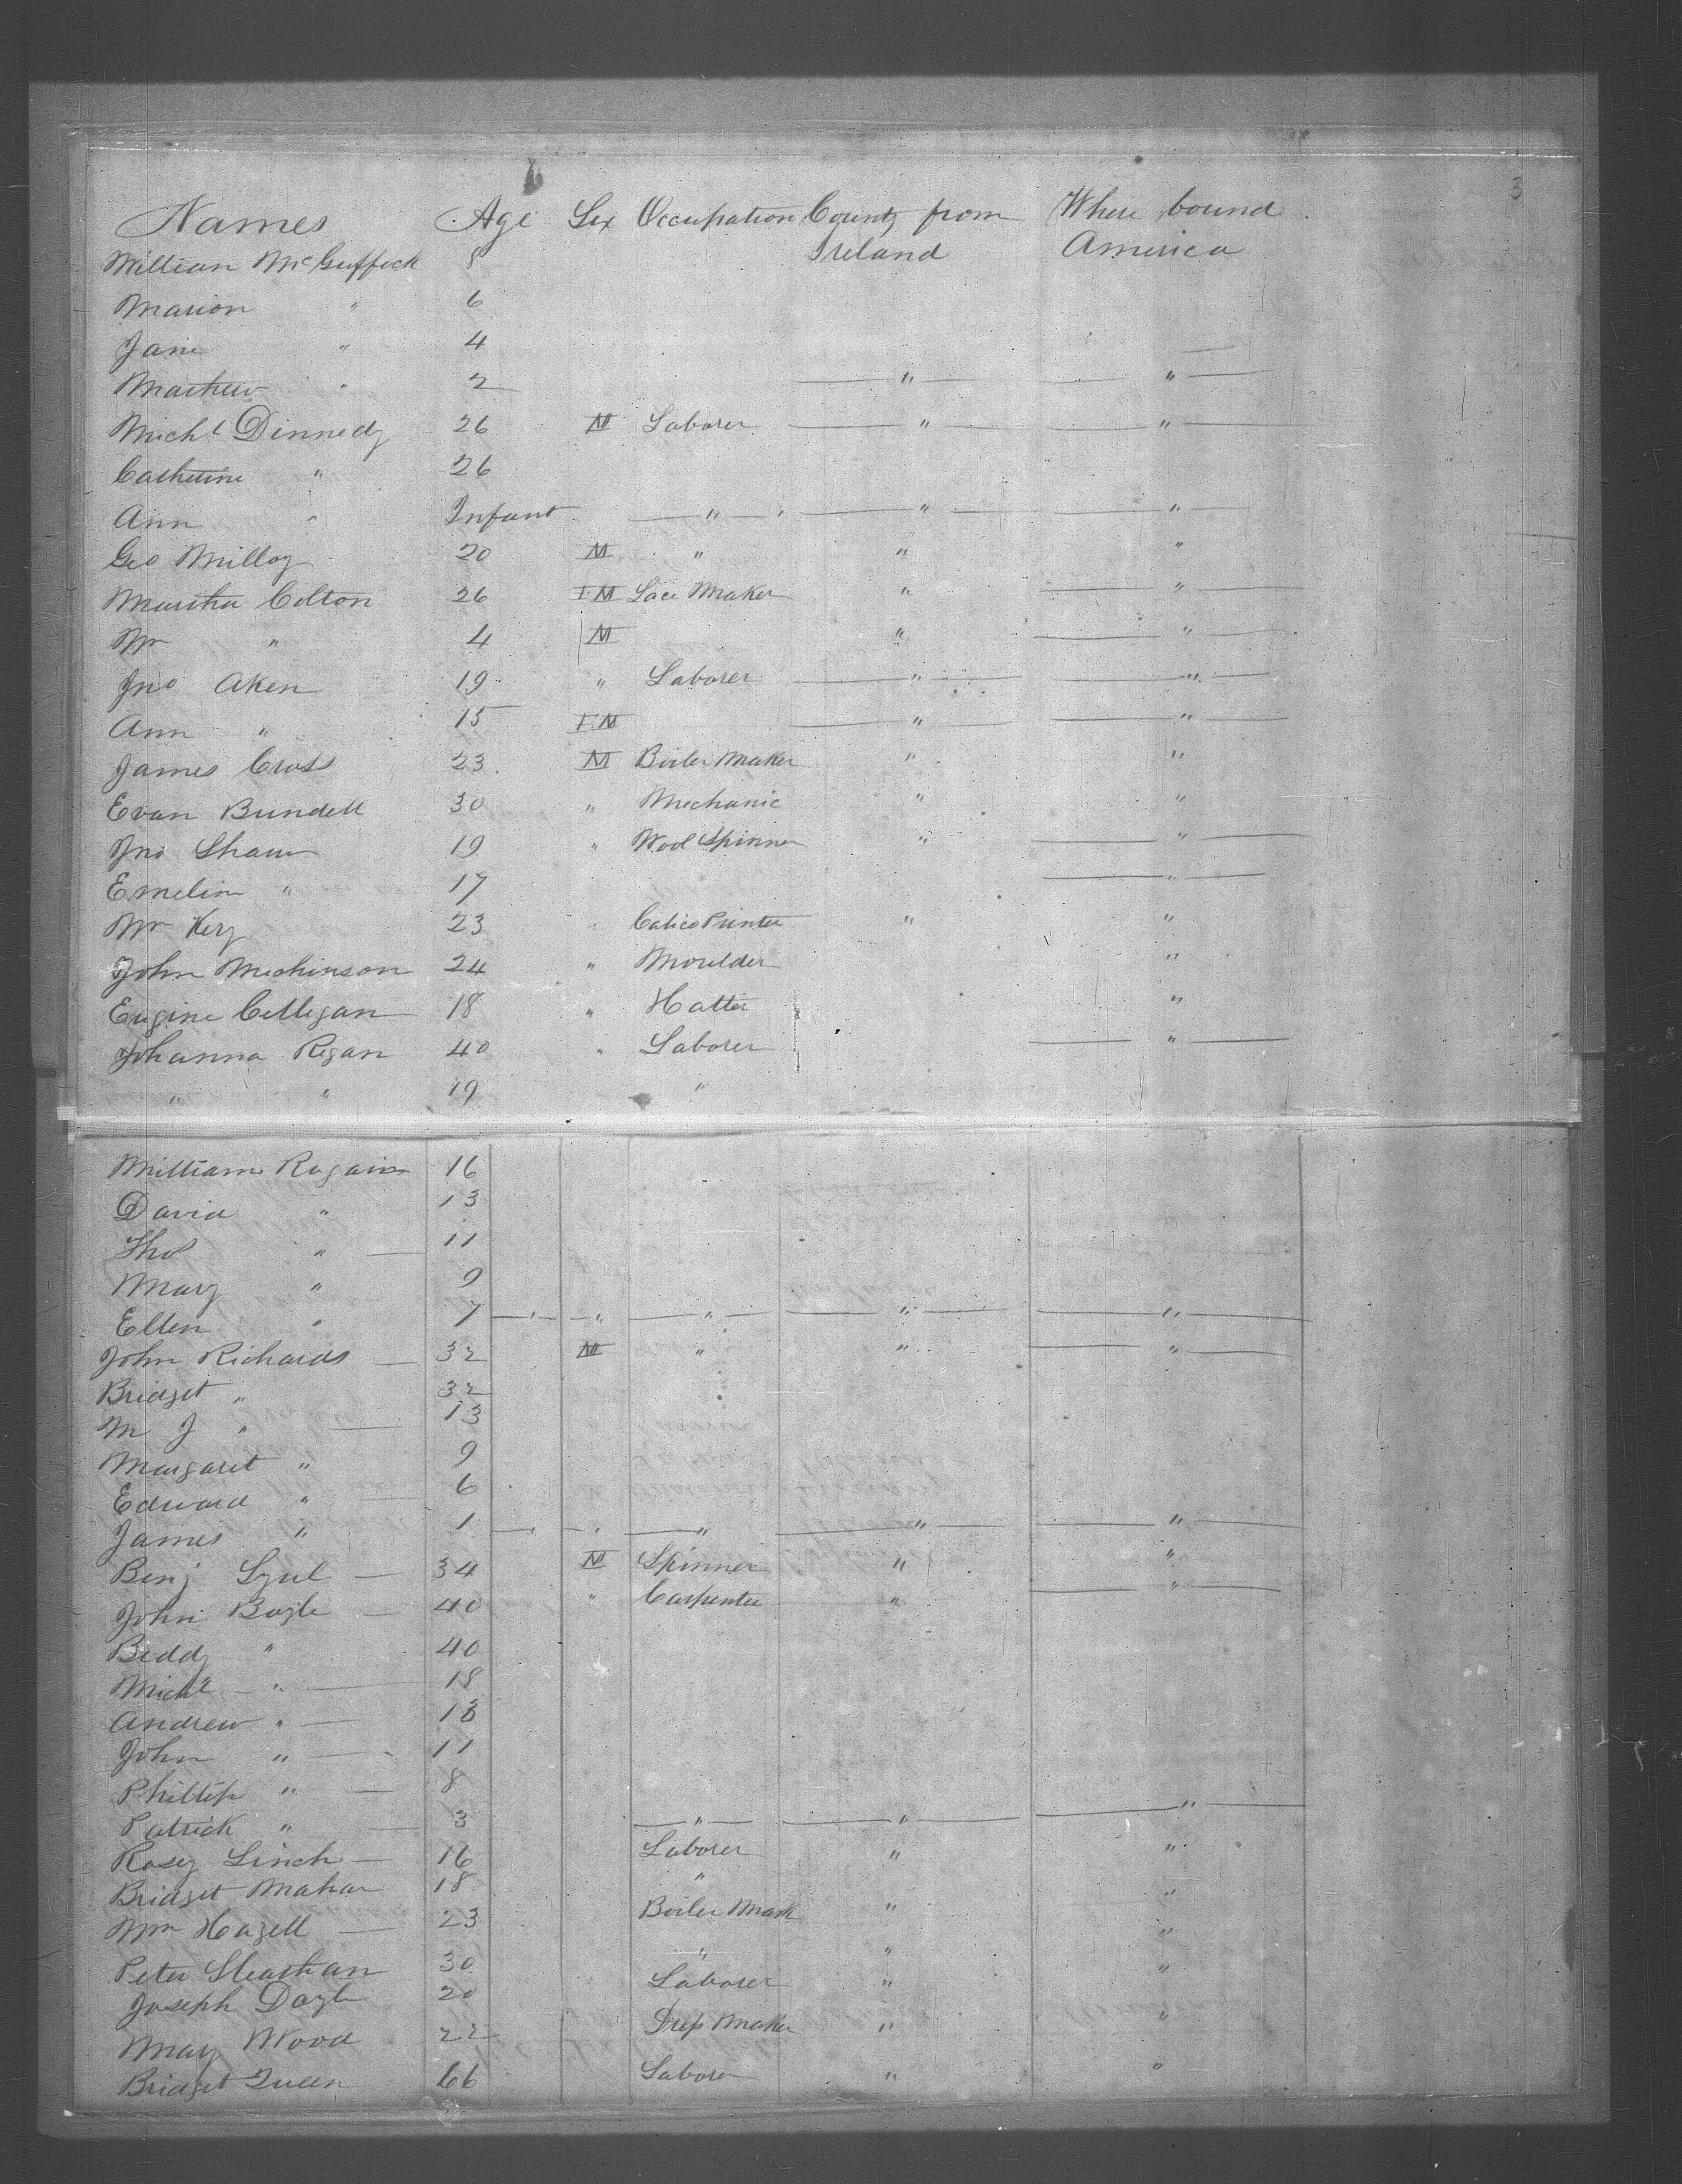 3
Names Age Sex Occupation County from Where bound
William McGuffock 8 Ireland America
Marion " 6
Jane " 4
Mathew " 2 " "
Michl Dinnedy 26 M Laborer " "
Catherine " 26
Ann " Infant " " "
Geo Milloy 20 M " " "
Martha Colton 26 F M Lace Maker " "
Wm " 4 M " "
Jno Aken 19 " Laborer " "
Ann " 15 F M " "
James Cross 23 M Boiler Maker " "
Evan Bundell 30 " Mechanic " "
Jno Shaw 19 " Wool Spinner " "
Emelin " 17 "
Wm Kery 23 " Calico Printer " "
John Mechinson 24 " Moulder "
Eugine Celligan 18 " Hatter "
Johanna Regan 40 " Laborer "
" " 19 "
William Ragain 16
David " 13
Tho " 11
Mary " 9
Ellen " 7 " " " " "
John Richards 32 M " " "
Bridget " 32
M J " 13
Margaret " 9
Edward " 6
James " 1 " " " " "
Benj 34 M Spinner " "
John Boyle 40 " Carpenter " "
Biddy " 40
Michl " 18
Andrew " 13
John " 11
Phillip " 8
Patrick " 3 " " "
Rosey Linch 16 Laborer " "
Bridget Mahar 18 " "
Wm Hazell 23 Boiler Mask " "
Peter 30 " " "
Joseph Doyle 20 Laborer "
Mary Wood 22 Drep Maker " "
Bridget Queen 66 Laborer " "